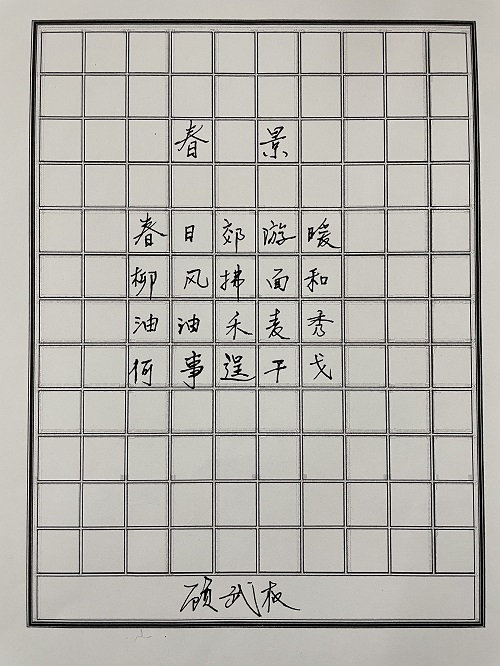 春景
春日郊游暖
柳风拂面和
油油禾麦秀
何事逞干戈
顾武权